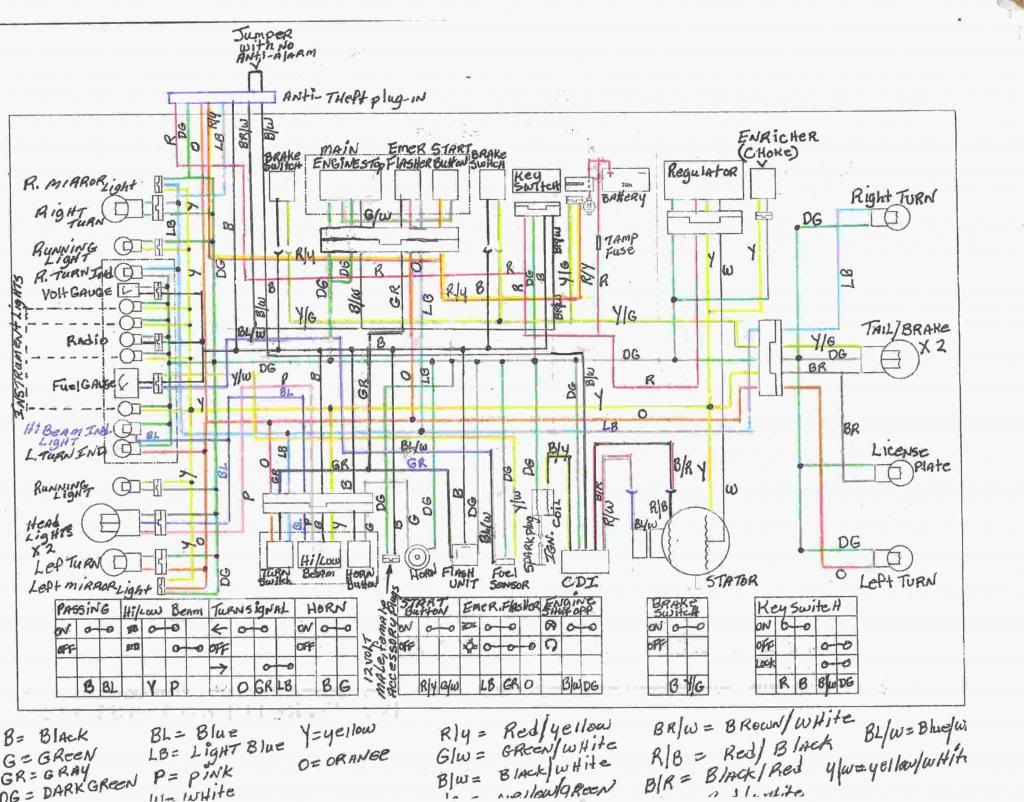 Jumper
with no
Anti-Alarm
Anti-Theft plug-in
R
DG
O
R/y
LB
BR/W
B/W
BRAKE SWITCH
MAIN ENGINE STOP
Emer FLASHER
START Button
BRAKE SWITCH
Key Switch
BATTERY
7AMP
Fuse
Regulator
ENRICHER
(CHOKE)
R. MIRROR Light
Right TURN
RUNNING Light
R. TURN IND
Volt GAUGE
Radio
Fuel GAUGE
Hi BEAM Ind. Light
L. TURN IND
INSTRUMENT LIGHTS
RUNNING Light
Head Lights X2
Left TURN
Left mirror Light
G/W
R/y
R
Y/G
BL/W
B
DG
Y/W
P
BL
GR
O
LB
Right TURN
DG
LB
TAIL/BRAKE
X 2
Y/G
DG
BR
BR
License
Plate
DG
O
Left TURN
Y/G
DG
R
O
LB
BL/W
GR
B/y
B/R
R/W
R/B
BL/W
Y
W
TURN Switch
Hi/Low Beam
HORN Button
HORN
FLASH UNIT
Fuel Sensor
SPARK plug
IGN. COIL
CDI
STATOR
12 VOLT
MALE, female
Accessory Plugs
PASSING
Hi/Low Beam
TURN signal
HORN
ON
OFF
OFF
ON
OFF
B BL
Y P
O GR LB
B G
START BUTTON
Emer. Flasher
ENGINE SHUT OFF
ON
OFF
R/y G/W
LB GR O
B/W DG
BRAKE SWITCH
ON
OFF
B Y/G
Key Switch
ON
OFF
LOCK
R B B/W DG
B= Black
G= GREEN
GR= GRAY
DG= DARK GREEN
BL= Blue
LB= Light Blue
P= pink
W= White
Y=yellow
O=ORANGE
R/y = Red/yellow
G/W = GREEN/white
B/W = Black/White
BR/W = BROWN/White
R/B = Red/Black
B/R = Black/Red
BL/W=Blue/W
Y/W=yellow/Whit